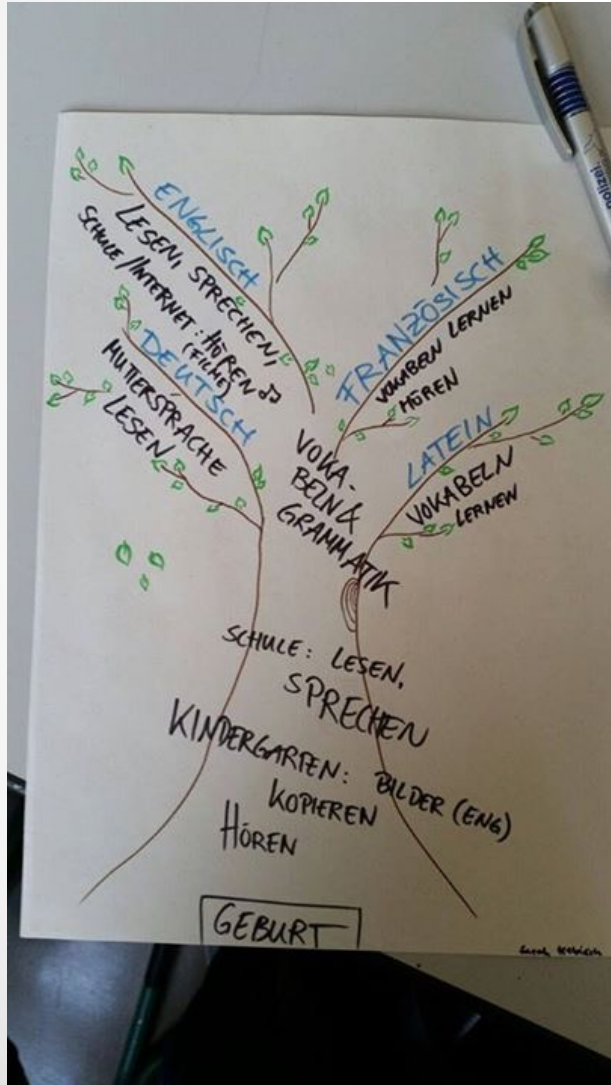 ENGLISCH
LESEN, SPRECHEN,
SCHULE/INTERNET: HÖREN ♫
(FILME)
DEUTSCH
MUTTERSPRACHE
LESEN
FRANZÖSISCH
VOKABELN LERNEN
HÖREN
LATEIN
VOKABELN
LERNEN
VOKA-
BELN &
GRAMMATIK
SCHULE: LESEN,
SPRECHEN
KINDERGARTEN: BILDER (ENG)
KOPIEREN
HÖREN
GEBURT
Sarah
polizei.